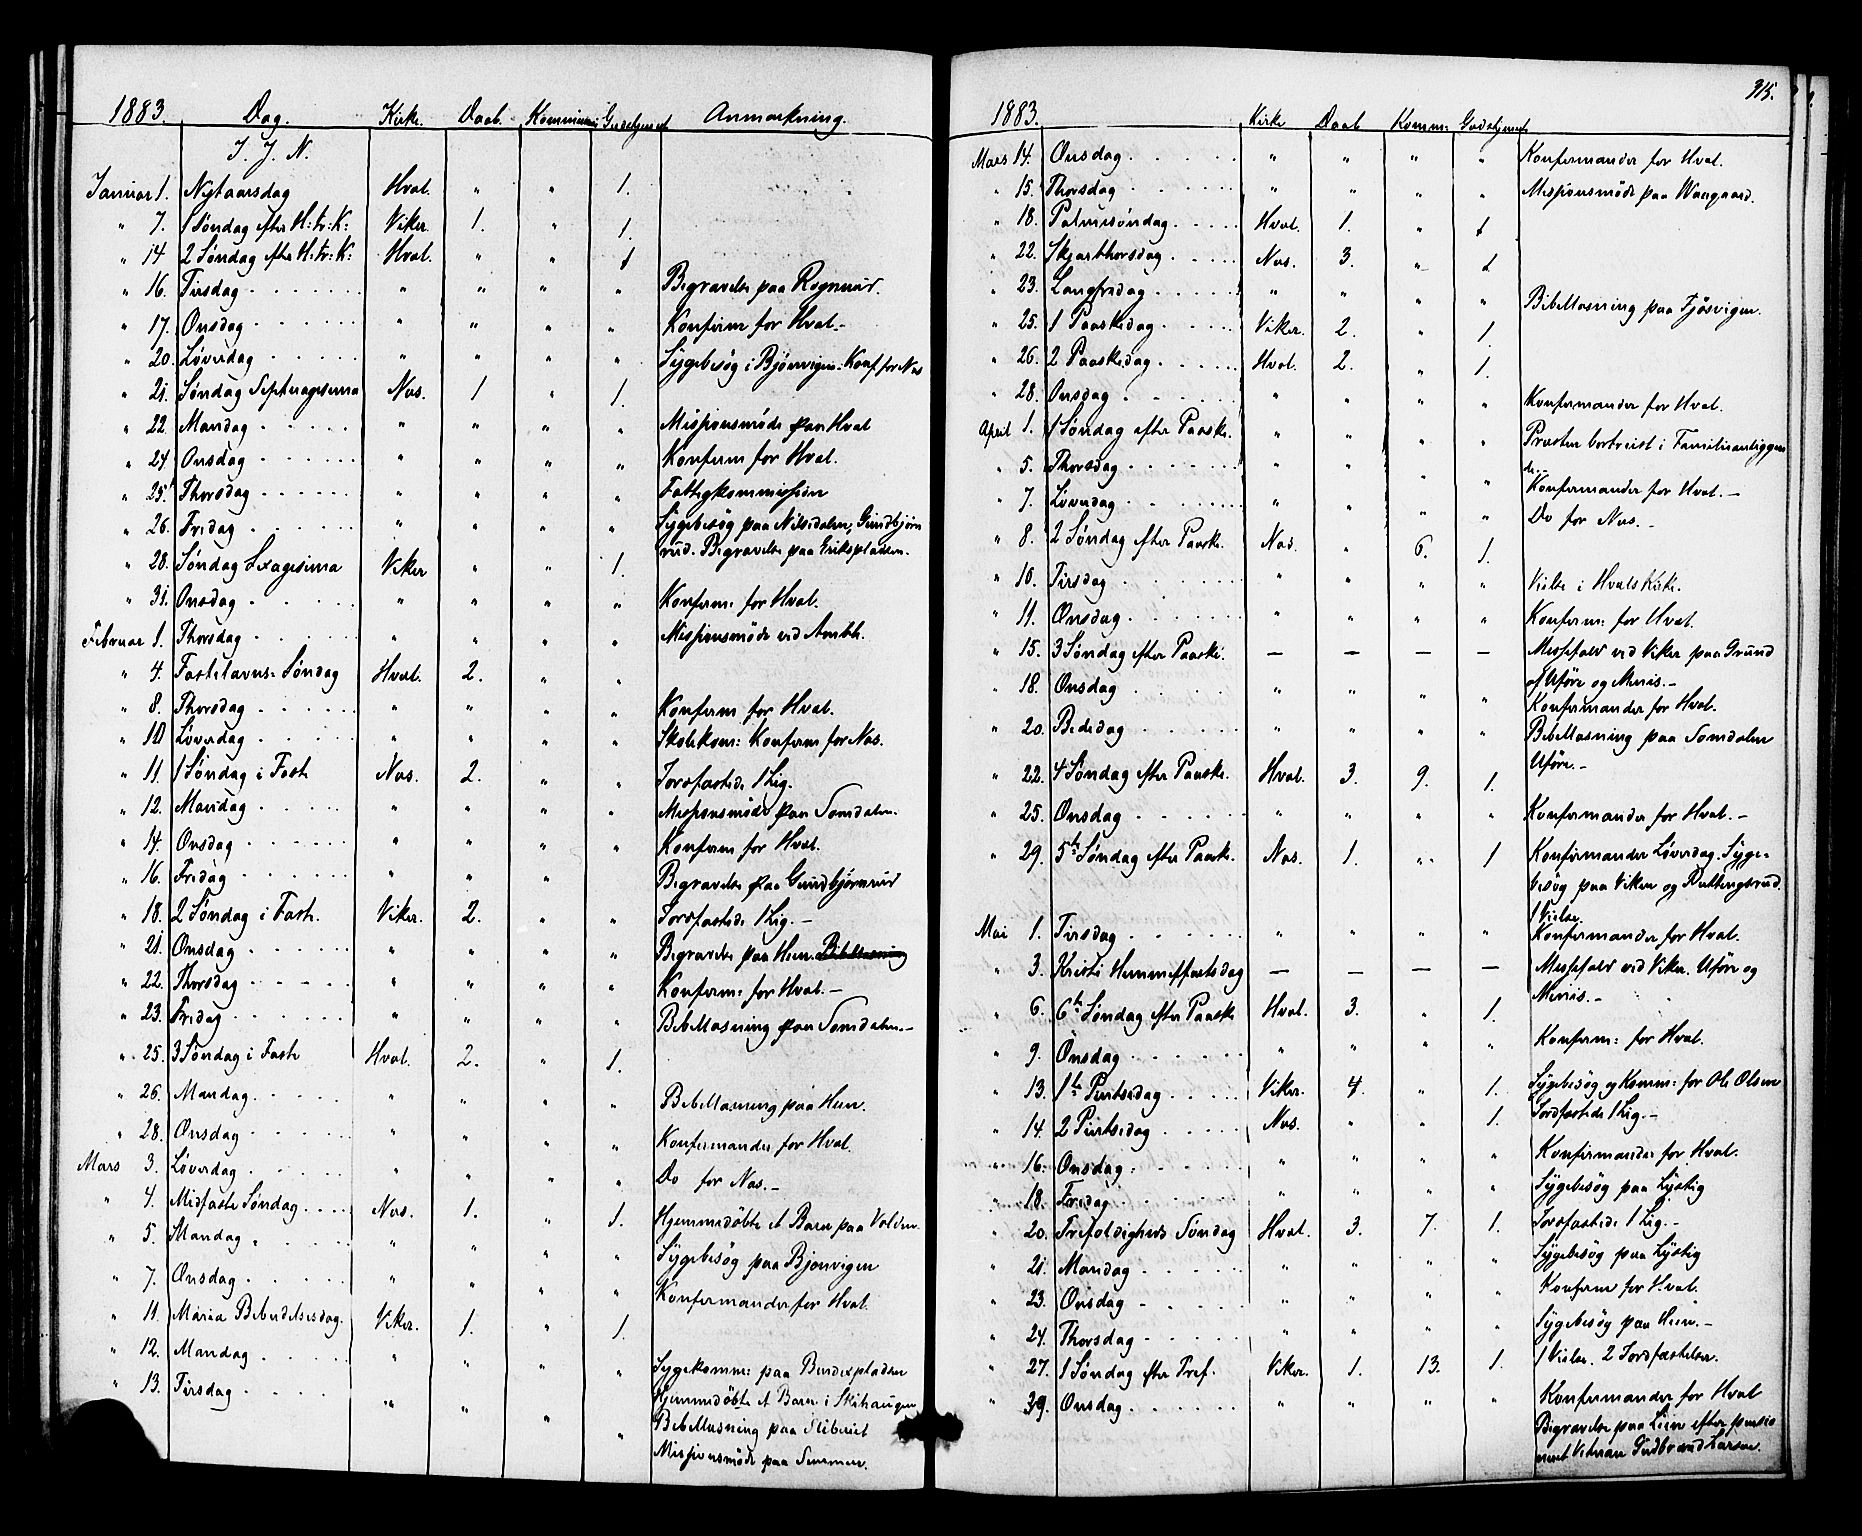 1883. Dag. Kirke. Daab. Kommunion Gudstjenest Anmærkning.
I. J. N.
Januar 1. Nytaarsdag Hval. " " 1.
" 7. 1 Søndag efter H: tr: K: Viker. 1. " 1.
" 14 2 Søndag efter H: tr: K: Hval. " " 1
" 16. Tirsdag " " " " Begravelse paa Rognerud.
" 17. Onsdag " " " " Konfirm for Hval.-
" 20. Løverdag " " " " Sygebesøg i Bjønvigen. Konf for Nas
" 21. Søndag Septuagesima Nas. 1 " 1.
" 22. Mandag " " " " Missionsmöde paa Hval
" 24. Onsdag " " " " Konfirm for Hval.
" 25. Thorsdag " " " " Fattigkommission
" 26. Fredag " " " " Sygebesøg paa Nilsedalen, Gundbjørn
rud. Begravelse paa Eriksplassen.
" 28. Søndag Sexagesima Viker " " 1.
" 31. Onsdag " " " " Konfirm: for Hval.
Februar 1. Thorsdag " " " " Missionsmöde ved Ambth.
" 4. Fastelavns: Søndag Hval. 2. " "
" 8. Thorsdag " " " " Konfirm for Hval.
" 10 Løverdag " " " " Skolekom: Konfirm for Nas.
" 11. 1 Søndag i Fast Nas. 2. " " Jordfæstede 1 Lig.
" 12. Mandag " " " " Missionsmöde paa Somdalen.
" 14. Onsdag " " " " Konfirm for Hval.
" 16. Fredag " " " " Begravelse paa Gundbjørnrud
" 18. 2 Søndag i Fast. Viker. 2. " " Jordfæstede 1 Lig.-
" 21. Onsdag " " " " Begravelse paa Heen. Bibellæsning
" 22. Thorsdag " " " " Konfirm: for Hval.-
" 23. Fredag " " " " Bibellæsning paa Somdalen.-
" 25. 3 Søndag i Fast Hval. 2. " 1.
" 26. Mandag " " " " Bibellæsning paa Heen.
" 28. Onsdag " " " " Konfirmander for Hval.
Mars 3. Løverdag " " " " Do for Nas.-
" 4. Midfaste Søndag Nas. 1. " 1. Hjemmedöbte et Barn paa Volden.
" 5. Mandag " " " " Sygebesøg paa Bjonvigen
" 7. Onsdag " " " " Konfirmander for Hval.
" 11. Maria Bebudelsesdag. Viker. 1. " 1.
" 12. Mandag " " " " Sygekomm: paa Bendixpladsen
" 13. Tirsdag " " " " Hjemmedöbte et Barn i Skihaugen
Bibellæsning paa Sliberiet
Missionsmöde paa Semmen.
915.
1883. Kirke Daab Komm: Gudstjenest
Mars 14. Onsdag " " " " Konfirmander for Hval.
" 15. Thorsdag " " " " Missionsmöde paa Waagaard.
" 18. Palmesøndag Hval. 1. " 1
" 22. Skjærthorsdag Nas. 3. " 1
" 23. Langfredag " " " " Bibellæsning paa Fjösvigen.
" 25. 1 Paaskedag Viker. 2. " 1.
" 26. 2 Paaskedag Hval. 2. " 1.
" 28. Onsdag " " " " Konfirmander for Hval.
April 1. 1 Søndag efter Paaske. " " " " Præsten bortreist i Familieanliggen
de.-
" 5. Thorsdag " " " " Konfirmander for Hval.-
" 7. Løverdag " " " " Do for Nas.-
" 8. 2 Søndag efter Paaske. Nas. " 6. 1.
" 10. Tirsdag " " " " Vielse i Hvals Kirke.
" 11. Onsdag " " " " Konfirm: for Hval.
" 15. 3 Søndag efter Paaske. — — — — Messefald ved Viker paa Grund
af Uføre og Menis.-
" 18. Onsdag " " " " Konfirmander for Hval.
" 20. Bededag " " " " Bibellæsning paa Somdalen
Uføre.-
" 22. 4 Søndag efter Paaske. Hval. 3. 9. 1.
" 25. Onsdag " " " " Konfirmander for Hval.-
" 29. 5te Søndag efter Paaske. Nas. 1. " 1 Konfirmander Løverdag. Syge-
besøg paa Viker og Ruttingsrud.
1 Vielse.
Mai 1. Tirsdag " " " " Konfirmander for Hval.
" 3. Kristi Himmelfartsdag — — — — Messefald ved Viker. Uføre og
Menis.-
" 6. 6te Søndag efter Paaske Hval. 3. " 1.
" 9. Onsdag " " " " Konfirm: for Hval.
" 13. 1te Pintsedag Viker. 4. " 1. Sygebesøg og Komm: for Ole Olsen
Jordfæstede 1 Lig.-
" 14. 2 Pintsedag Nas. " " 1.
" 16. Onsdag " " " " Konfirmander for Hval.
" 18. Fredag " " " " Sygebesøg paa Lystig
" 20. Trefoldigheds Søndag Hval. 3. 7. 1. Jordfæstede 1 Lig.-
" 21. Mandag " " " " Sygebesøg paa Lystig
" 23. Onsdag " " " " Konfirm for Hval.
" 24. Thorsdag " " " " Sygebesøg paa Heen.-
" 27. 1 Søndag efter Tref. Viker. 1. 13. 1. 1 Vielse. 2 Jordfæstelser.
" 39. Onsdag " " " " Konfirmander for Hval
Begravelse paa Lien efter pensio
neret Veteran Gudbrand Larsen.